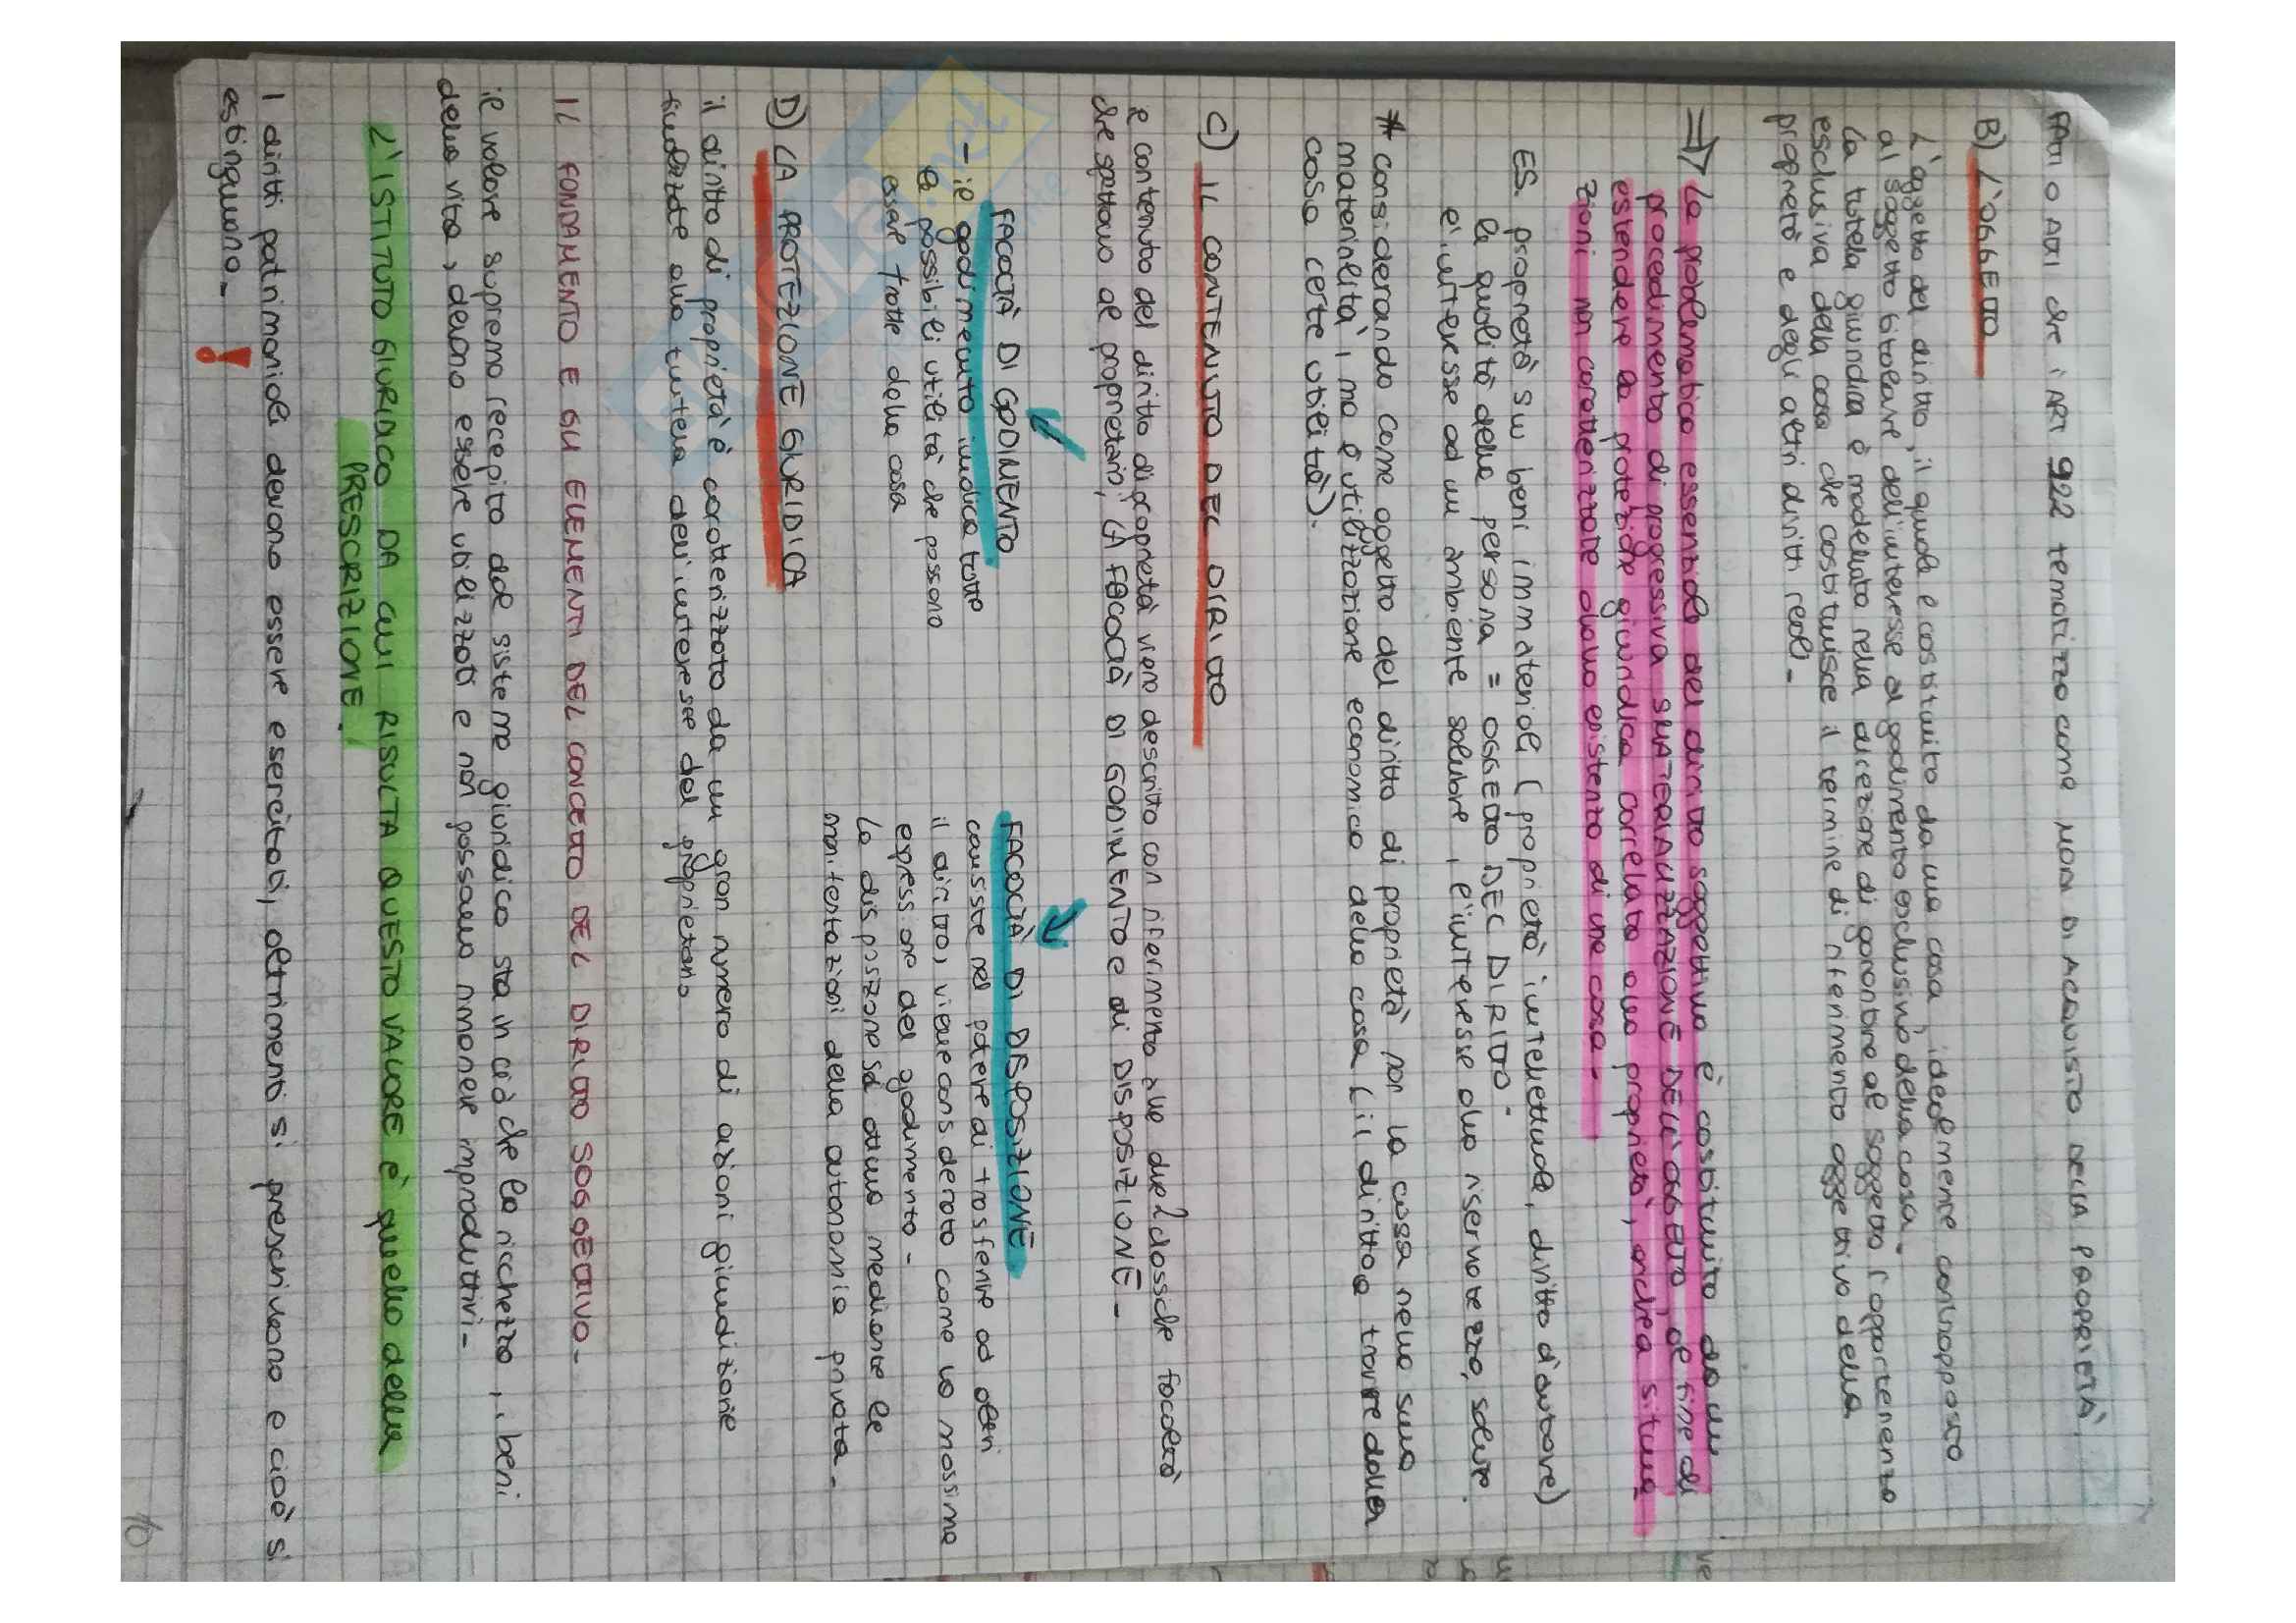 FATTI O ATTI che l'ART 922 tematizza come MODI DI ACQUISTO DELLA PROPRIETÀ.
B) L'OGGETTO
L'oggetto del diritto, il quale è costituito da una cosa, idealmente contrapposto
al soggetto titolare dell'interesse al godimento esclusivo della cosa.
La tutela giuridica è modellata nella direzione di garantire al soggetto l'appartenenza
esclusiva della cosa che costituisce il termine di riferimento oggettivo della
proprietà e degli altri diritti reali.
⇒ La problematica essenziale del diritto soggettivo è costituita da un
procedimento di progressiva SMATERIALIZZAZIONE DELL'OGGETTO, al fine di
estendere la protezione giuridica correlata alla proprietà, anche a situa
zioni non caratterizzate dalla esistenza di una cosa.
ES. proprietà su beni immateriali (proprietà intellettuale, diritto d'autore)
le qualità della persona = OGGETTO DEL DIRITTO.
l'interesse ad un ambiente salubre, l'interesse alla riservatezza, salute.
* considerando come oggetto del diritto di proprietà non la cosa nella sua
materialità, ma l'utilizzazione economica della cosa (il diritto a trarre dalla
cosa certe utilità).
C) IL CONTENUTO DEL DIRITTO
Il contenuto del diritto di proprietà viene descritto con riferimento alle due classiche facoltà
che spettano al proprietario; LA FACOLTÀ DI GODIMENTO e di DISPOSIZIONE.
FACOLTÀ DI GODIMENTO
- il godimento indica tutte
le possibili utilità che possono
essere tratte dalla cosa
FACOLTÀ DI DISPOSIZIONE
consiste nel potere di trasferire ad altri
il diritto, viene considerato come la massima
espressione del godimento.
La disposizione si attua mediante le
manifestazioni della autonomia privata.
D) LA PROTEZIONE GIURIDICA
il diritto di proprietà è caratterizzato da un gran numero di azioni giudiziarie
finalizzate alla tutela dell'interesse del proprietario
IL FONDAMENTO E GLI ELEMENTI DEL CONCETTO DEL DIRITTO SOGGETTIVO.
il valore supremo recepito dal sistema giuridico sta in ciò che la ricchezza, i beni
della vita, devono essere utilizzati e non possano rimanere improduttivi.
L'ISTITUTO GIURIDICO DA CUI RISULTA QUESTO VALORE È quello della
PRESCRIZIONE.
I diritti patrimoniali devono essere esercitati, altrimenti si prescrivono e cioè si
estinguono. !
10